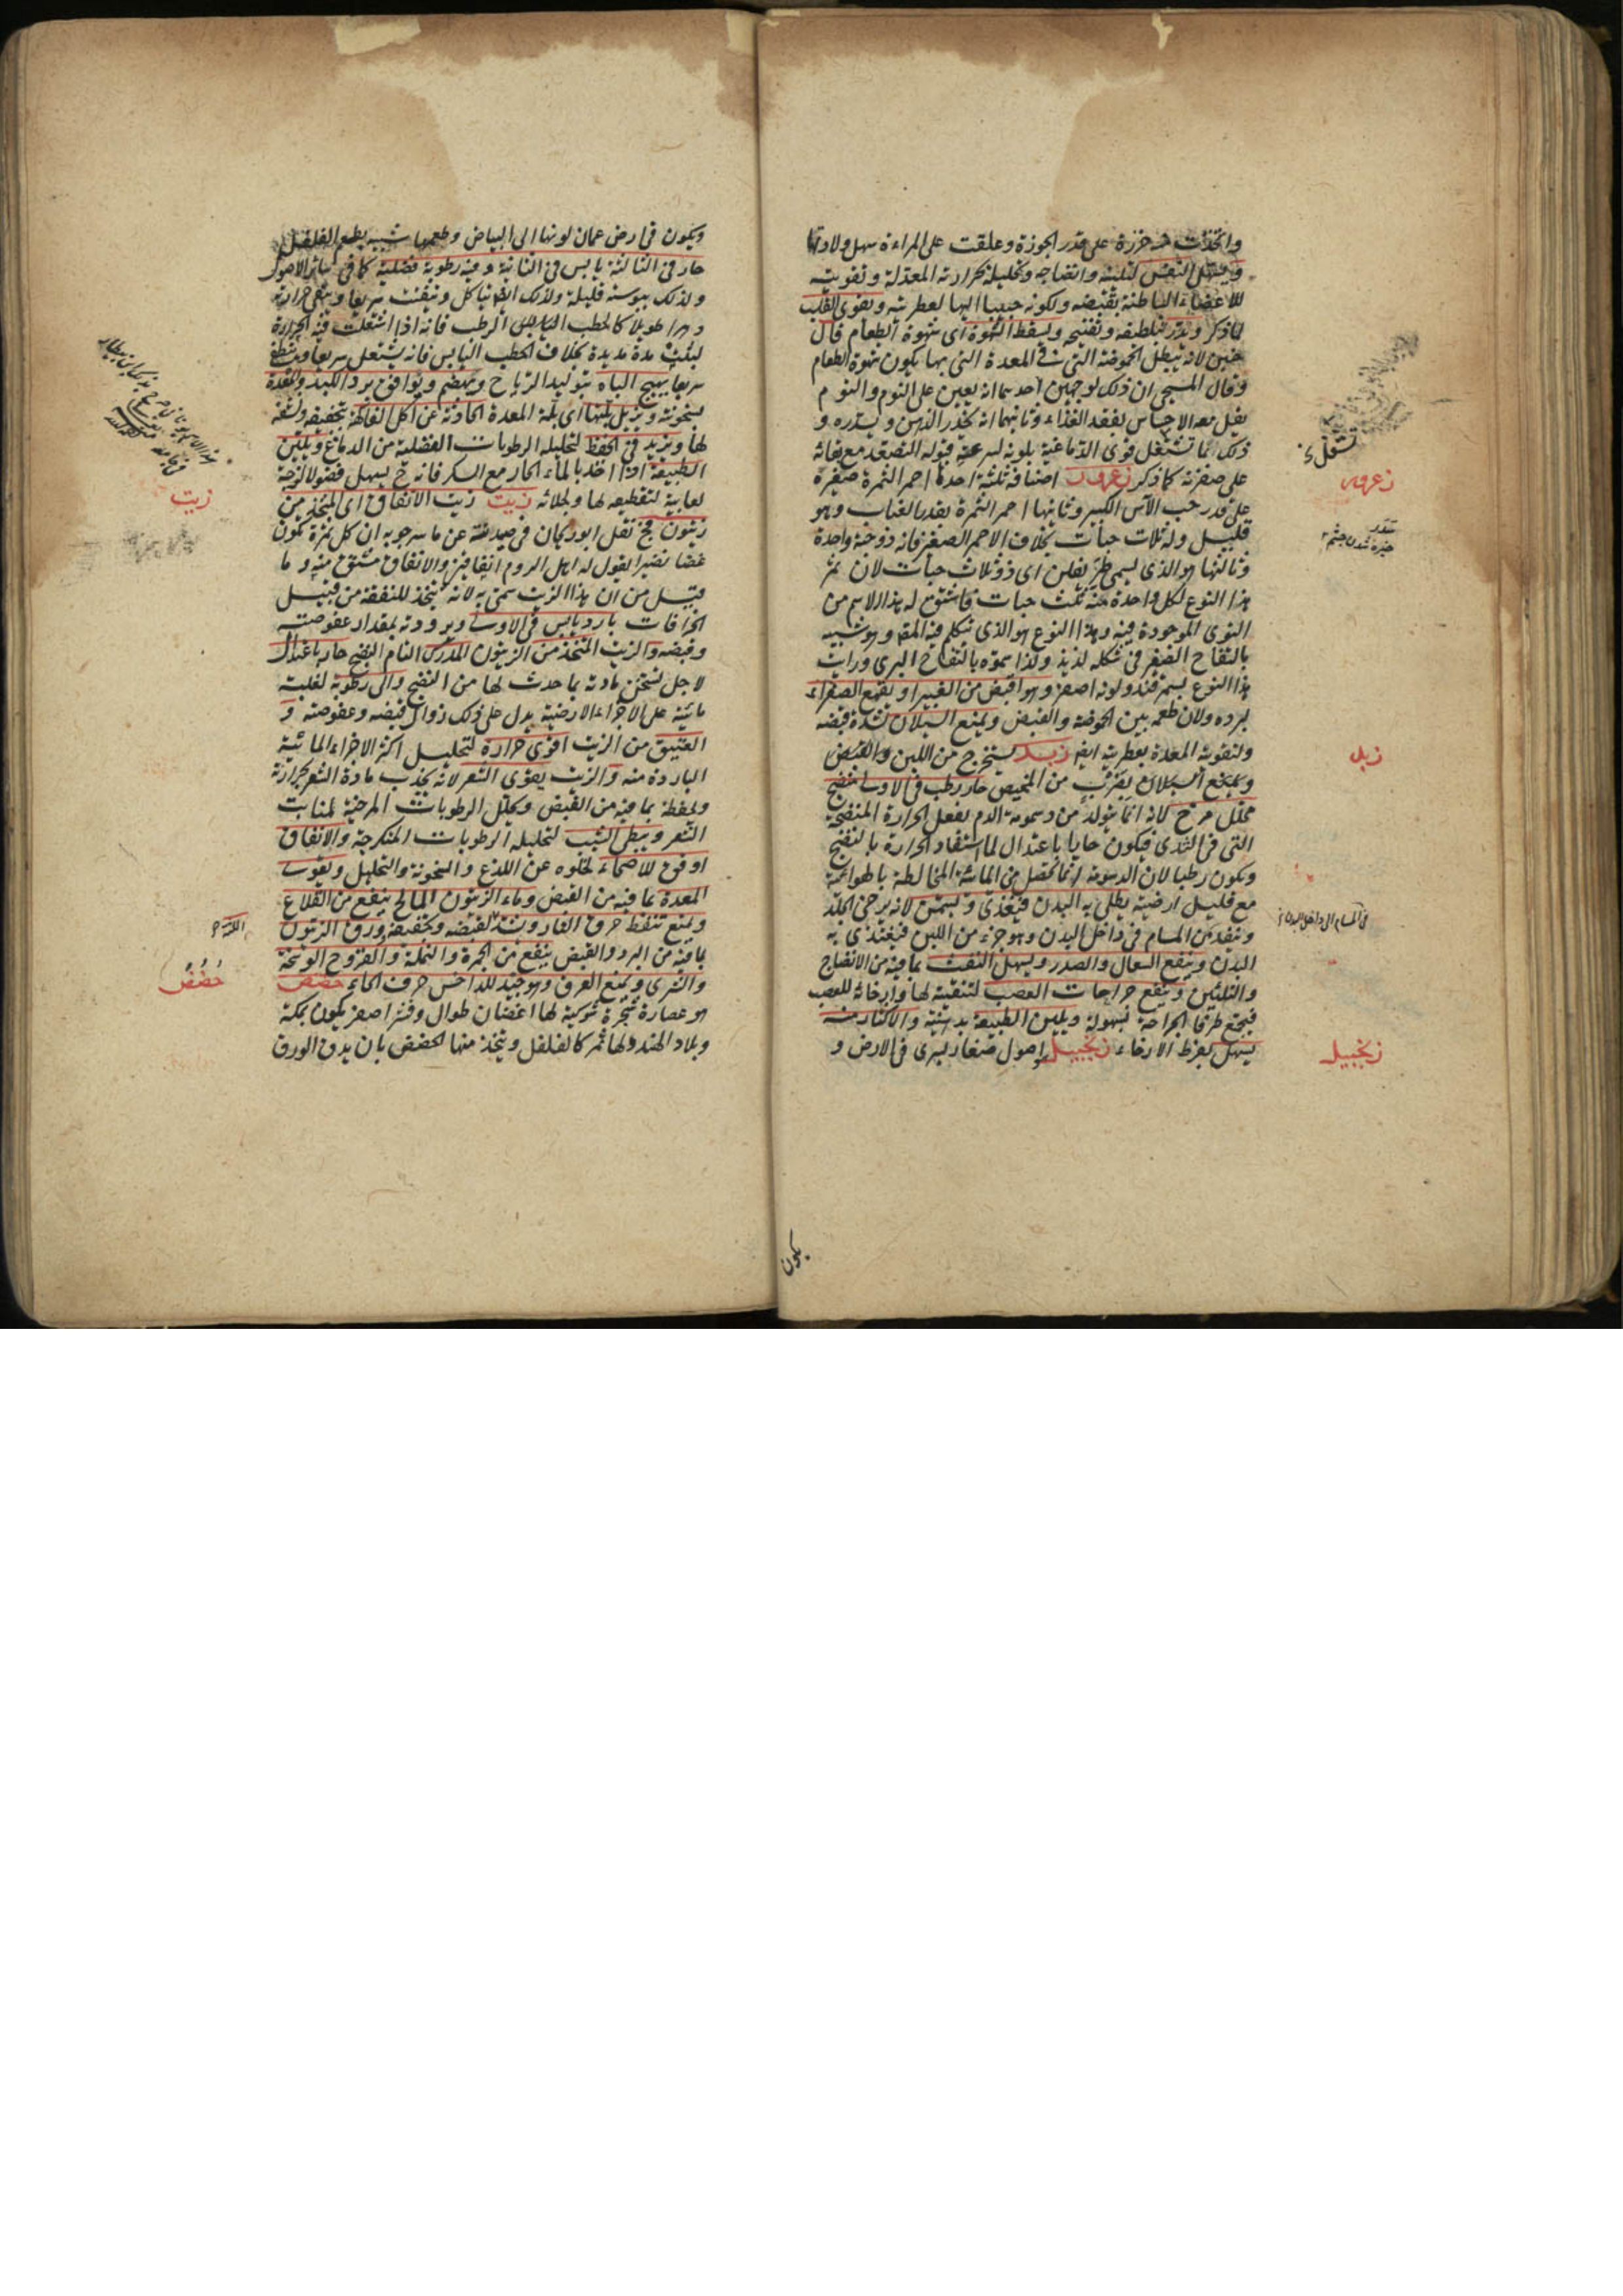 واتخذت منه خرزة على قدر الجوزة وعلقت على المراءة سهل ولادتها
ويسهل النفس لتليينه وانضاجه وتحليله بحرارته المعتدلة وتقويته
للاعضاء الباطنة بقبضه ولكونه حبيبا اليها لعطريته ويقوى القلب
لما ذكر ويدر بتلطيفه وتفتيحه ويسقط الشهوة اى شهوة الطعام قال
حنين لانه يبطل الحموضة التى فى المعدة التى بها يكون شهوة الطعام
وقال المسيحى ان ذلك لوجهين احديهما انه يعين على النوم والنوم
يقل معه الاحساس بفقد الغذاء وثانيهما انه يخدر الذهن ويسدره و
ذلك مما تشتغل قوى الدماغية بلونه لسرعة قبوله التصعد مع بقائه
على صفرته كما ذكر زعرور اصنافه ثلثة احدها احمر الثمرة صغيرة
على قدر حب الآس الكبير وثانيها احمر الثمرة بقدر العناب وهو
قليل وله ثلاث حبات بخلاف الاحمر الصغير فانه ذو حبة واحدة
وثالثها هو الذى يسمى طريفلن اى ذو ثلاث حبات لان ثمر
هذا النوع لكل واحدة منه ثلث حبات فاشتق له هذا الاسم من
النوى الموجودة فيه وهذا النوع هو الذى تكلم فيه المص وهو شبيه
بالتفاح الصغير فى شكله لذيذ ولذا سموه بالتفاح البرى ورايت
هذا النوع بسمرقند ولونه اصفر وهو اقبض من الغبيرا ويقمع الصفراء
لبرده ولان طعمه بين الحموضة والقبض ويمنع السيلان لشدة قبضه
ولتقويته المعدة بعطريته ايضا زبد يستخرج من اللبن والقبض
ويمنع السيلان بضرب من المخيض حار رطب فى الاولى منضج
محلل مرخ لانه انما يتولد من دسومة الدم بفعل الحرارة المنضجة
التى فى الثدى فيكون حارا باعتدال لما استفاد الحرارة بالنضج
ويكون رطبا لان الدسومة انما تحصل من المائية المخالطة بالهوائية
مع قليل ارضية يطلى به البدن فيغذى ويسمن لانه يرخى الجلد
وينفد من المسام فى داخل البدن وهو جزء من اللبن فيغتذى به
البدن وينفع السعال والصدر ويسهل النفث بما فيه من الانضاج
والتليين وينفع جراحات العصب لتنقيته لها وارخائه للعصب
فيجتمع طرفا الجراحة بسهولة ويلين الطبيعة بدهنيته والاكثار منه
يسهل بفرط الارخاء زنجبيل اصول صغار يسرى فى الارض و
زعرور
زبد
فى المسام الى داخل البدن
زنجبيل
يكون
ويكون فى ارض عمان لونها الى البياض وطعمها شبيه بطعم الفلفل
حار فى الثالثة يابس فى الثانية وفيه رطوبة فضلية كما فى سائر الاصول
ولذلك يبوسته قليلة ولذلك ايضا يتاكل ويتفتت سريعا ويبقى حرارته
دهرا طويلا كالحطب الرطب فانه اذا اشتعلت فيه الحرارة
لبثت مدة مديدة بخلاف الحطب اليابس فانه يشتعل سريعا وينطفئ
سريعا يهيج الباه بتوليد الرياح ويهضم ويوافق برد الكبد والمعدة
بسخونته ويزيل بلتها اى بلة المعدة الحادثة عن اكل الفاكهة بتجفيفه ونشفه
لها ويزيد فى الحفظ لتحليله الرطوبات الفضلية من الدماغ ويلين
الطبيعة اذا اخذ بالماء الحار مع السكر فانه ح يسهل فضولا لزجة
لعابية لتقطيعه لها ولجلائه زيت زيت الانفاق اى المتخذ من
زيتون فج نقل ابو ريحان فى صيدلته عن ماسرجويه ان كل ثمرة تكون
غضا نضيرا يقول له اهل الروم انفاقين والانفاق مشتق منه وما
قيل من ان هذا الزيت سمى به لانه يتخذ للنفقة من قبيل
الخرافات بارد يابس فى الاولى وبرودته بمقدار عفوصته
وقبضه والزيت المتخذ من الزيتون المدرك التام النضج حار باعتدال
لاجل تسخن مادته بما حدث لها من النضج والى رطوبة لغلبة
مائية على الاجزاء الارضية يدل على ذلك زوال قبضه وعفوصته و
العتيق من الزيت اقوى حرارة لتحليل اكثر الاجزاء المائية
الباردة منه والزيت يقوى الشعر لانه يجذب مادة الشعر بحرارته
ولحفظه بما فيه من القبض ويحلل الرطوبات المرخية لمنابت
الشعر ويبطى الشيب لتحليله الرطوبات المتكرجة والانفاق
اوفق للاصحاء لخلوه عن اللذع والسخونة والتحليل ويقوى
المعدة بما فيه من القبض وماء الزيتون المالح ينفع من القلاع
ويمنع تنفط حرق النار ويشد اللثة لقبضه وتجفيفه ورق الزيتون
بما فيه من البرد والقبض ينفع من الحمرة والنملة والقروح الوسخة
والشرى ويمنع العرق وهو جيد للداحس حرف الحاء حضض
هو عصارة شجرة شوكية لها اغصان طوال وقشر اصفر يكون بمكة
وبلاد الهند ولها ثمر كالفلفل ويتخذ منها الحضض بان يدق الورق
زيت
اللثة
حضض